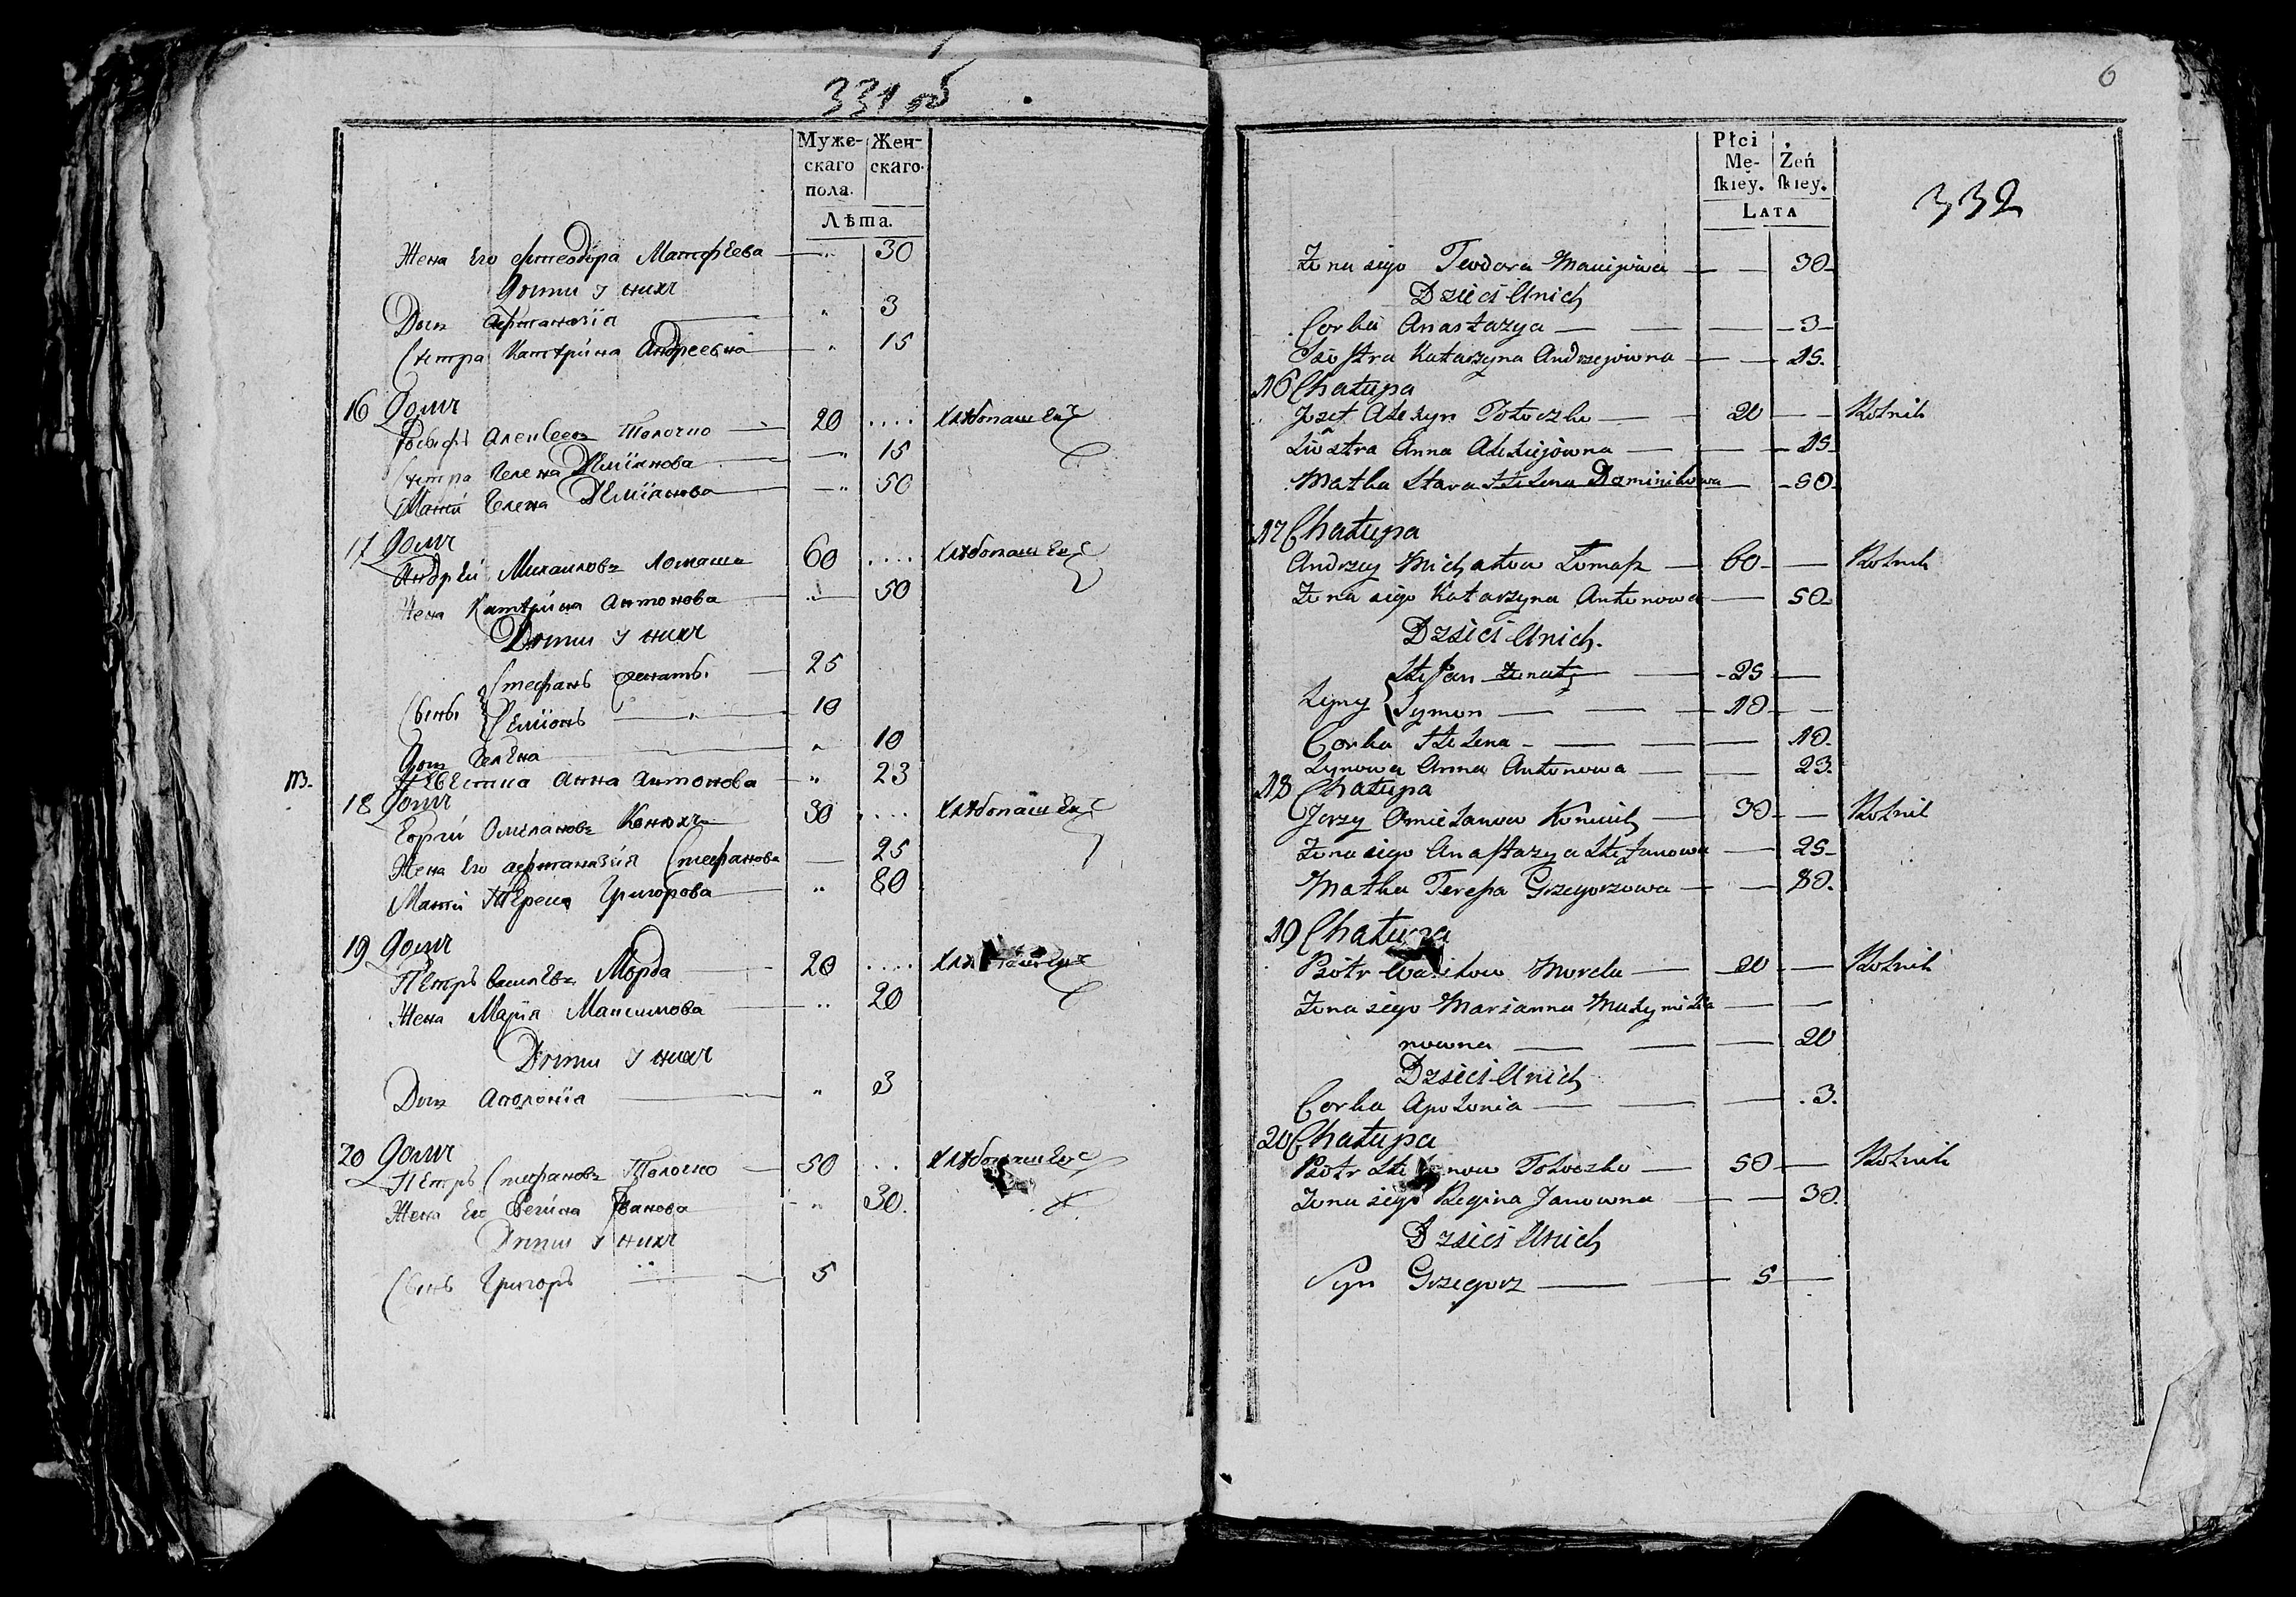 331 об
Муже- Жен-
скаго скаго.
пола.
Лѣта.
Жена Его Фтеодора Матфѣева — „ 30
Дѣти у нихъ
Дочь Афтаназія — „ 3
Сестра Катѣрина Андреевна — „ 15
16 Домъ
Іосифъ Алексеевъ Толочко — 20 .... хлѣбопашецъ
Сестра Елена Деміянова — „ 15
Мати Елена Деміянова — „ 50
17 Домъ
Андрей Михаиловъ Ломаша 60 .... хлѣбопашецъ
Жена Катѣрина Антонова — „ 50
Дѣти у нихъ
Стефанъ женатъ. — 25
Сыны Семіонъ — „ 10
Дочь Елена — „ 10
Невестка Анна Антонова — „ 23
18 Домъ
Еоргій Омеляновъ Конюхъ 30 .... хлѣбопашецъ
Жена Его Афтаназія Стефанова — 25
Мати Тереса Григорова — „ 80
19 Домъ
Петръ Васильевъ Морда — 20 ....
Жена Марія Максимова — „ 20
Дѣти у нихъ
Дочь Аполонія — „ 3
20 Домъ
Петръ Стефановъ Толочко — 50 ... хлѣбопашецъ
Жена Его Регина Иванова — „ 30.
Дѣти у нихъ
Сынъ Григоръ — 5
6
Płci
Mę- Żeń
skiey. skiey.
Lata
332
Żona iego Teodora Maciejowa — — 30
Dzieci Unich
Corka Anastazya — — 3
Siostra Katarzyna Andrzejowna — — 15.
16 Chałupa
Jozef Alexyn Tołoczko — 20 — Rolnik
Siostra Anna Alexiejowna — — 15
Matka Stara Helena Dominikowa — 50
17 Chałupa
Andrzey Michałow Łomasz — 60 — Rolnik
Żona iego Katarzyna Antonowa — 50
Dzieci Unich.
Stefan żonaty — 25 —
Syny Symon — — 10 —
Corka Helena — — — 10.
Synowa Anna Antonowa — — 23.
18 Chałupa
Jerzy Omielanow Koniuch — 30 — Rolnik
Żona iego Anastazya Stefanowa — 25
Matka Teresa Grzegorzowa — — 80.
19 Chałupa
Piotr Wasilow Morda — 20 — Rolnik
Żona iego Marianna Maxymilia — —
nowna — — — 20
Dzieci Unich
Corka Apolonia — — — 3.
20 Chałupa
Piotr Tołoczko — 50 — Rolnik
Żona iego Regina Janowna — — 30.
Dzieci Unich
Syn Grzegorz — — 5 —